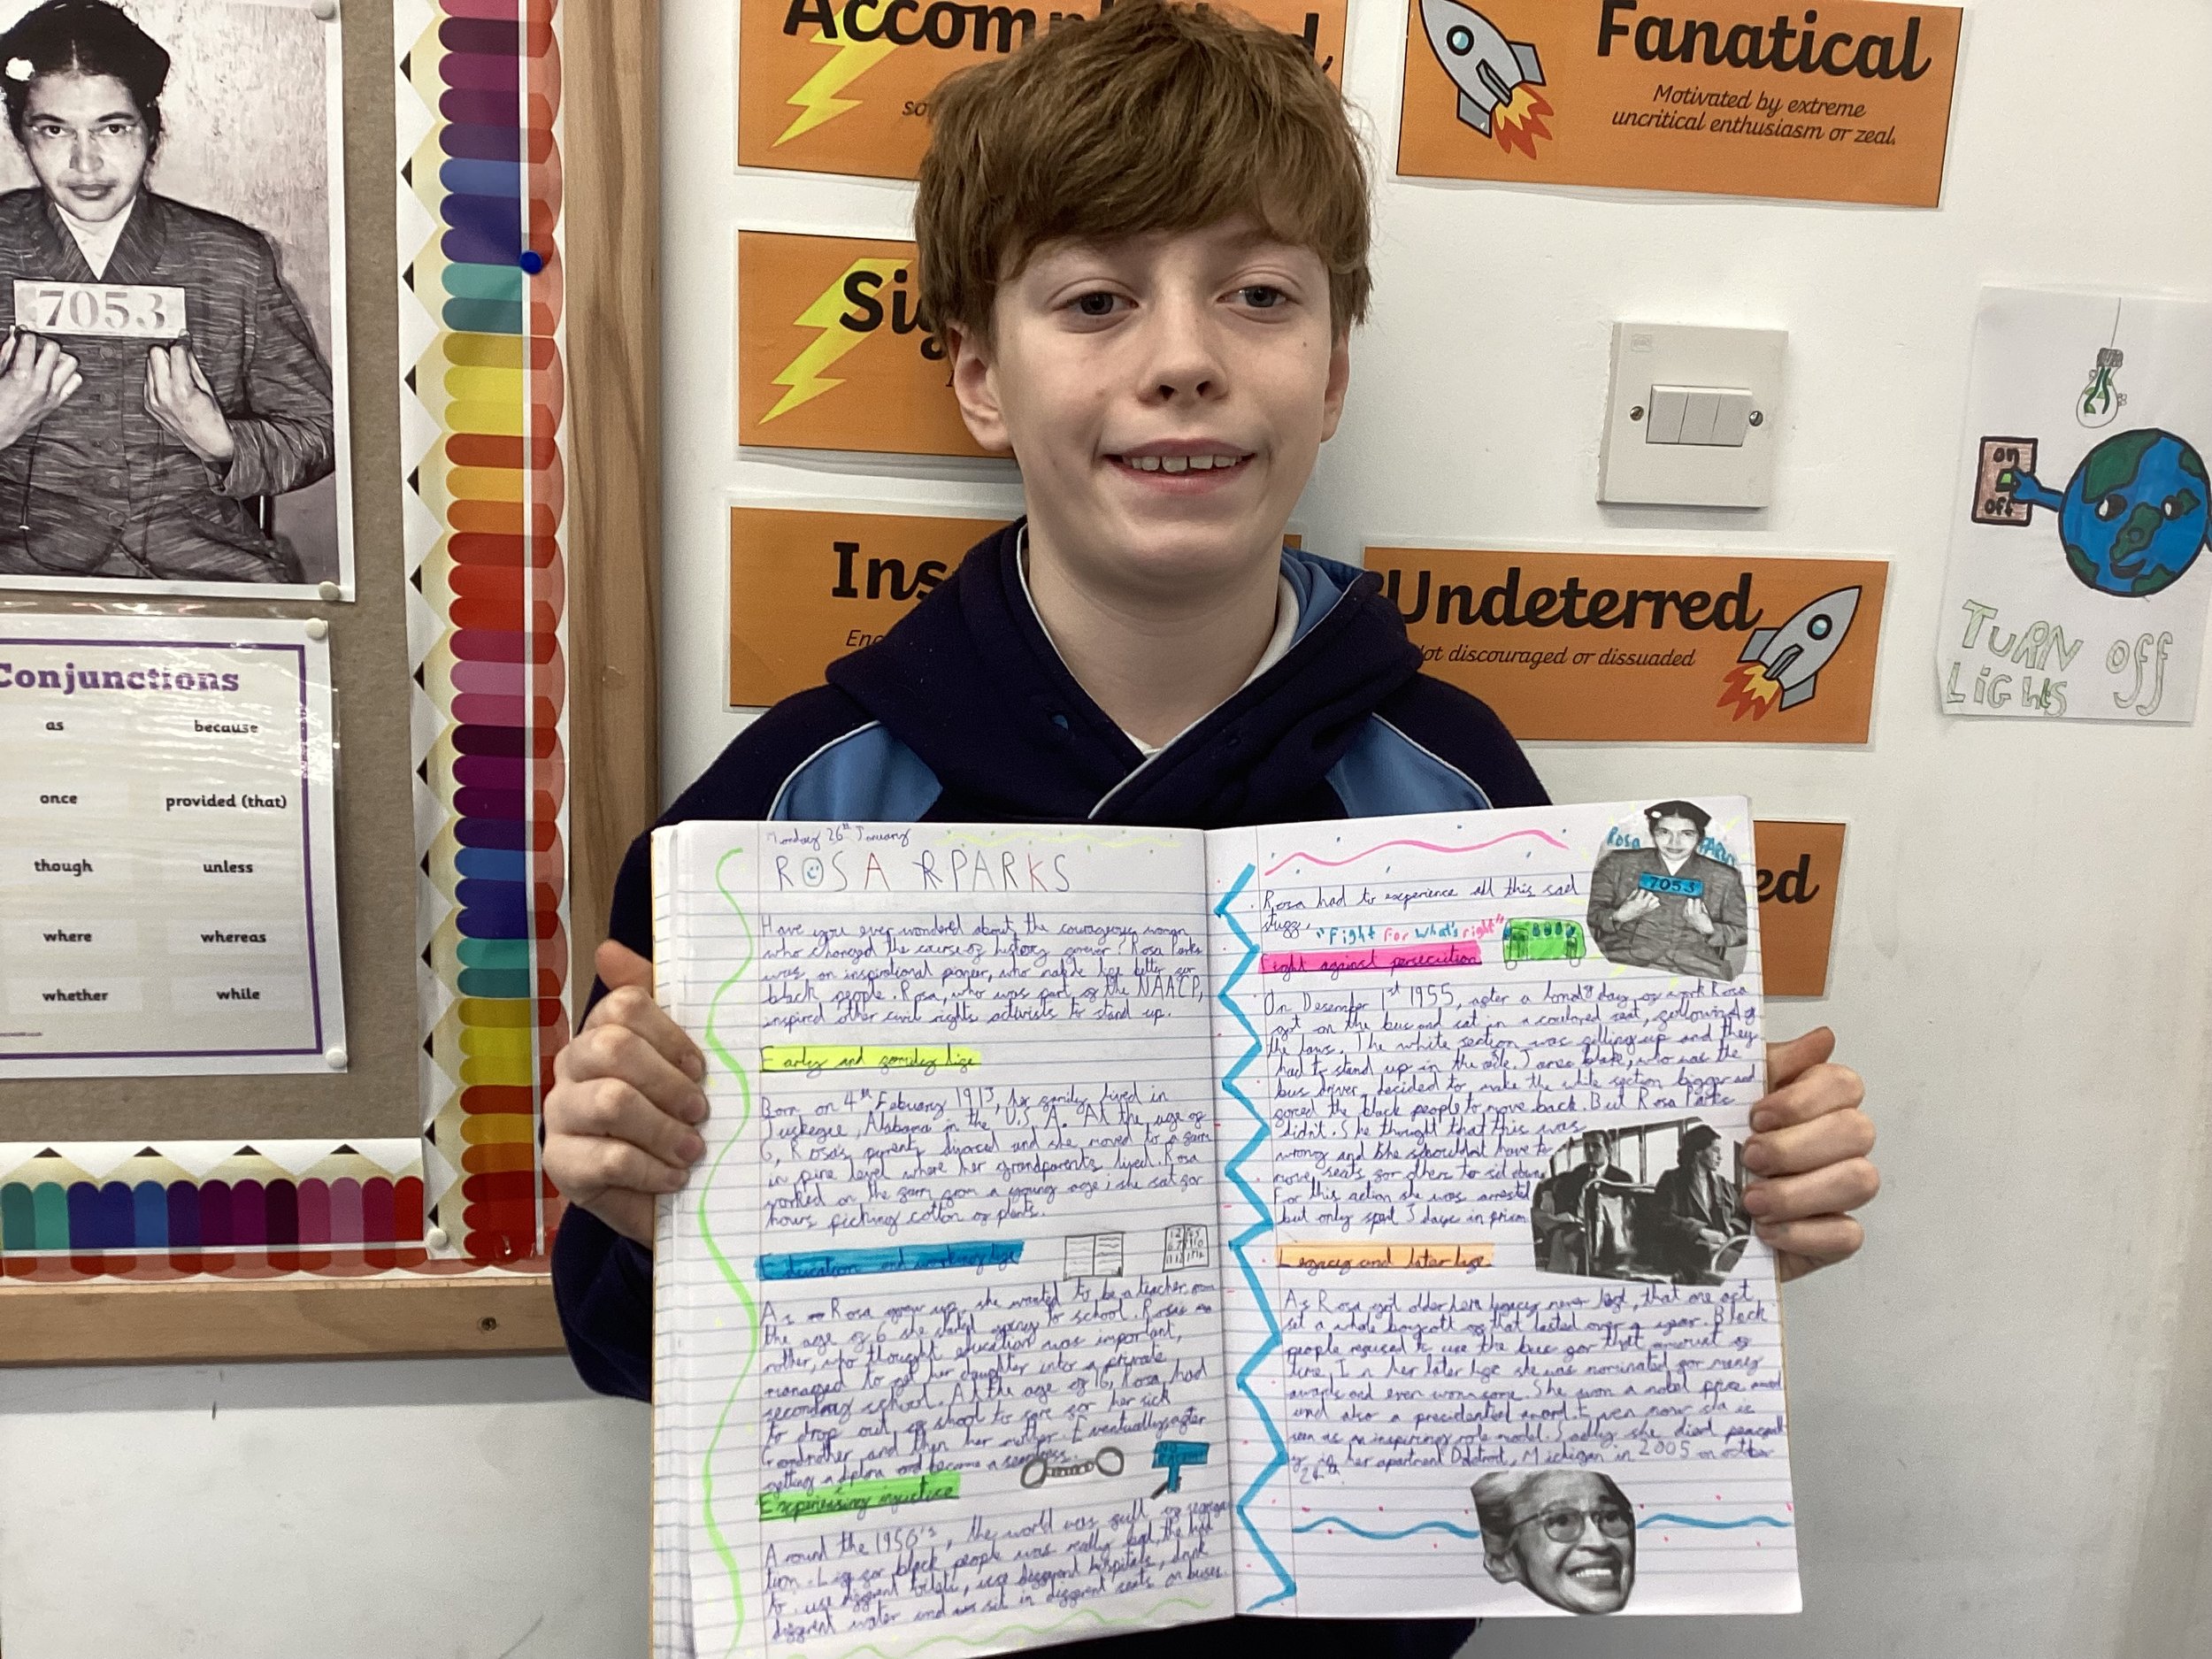 7053
Conjunctions
as because
once provided (that)
though unless
where whereas
whether while
Accom
so
Sig
Ins
Fanatical
Motivated by extreme
uncritical enthusiasm or zeal.
Undeterred
Not discouraged or dissuaded
ed
on
off
TURN Off
LigHts
Monday 26th January
ROSA PARKS
Have you ever wondered about the courageous woman
who changed the course of history forever? Rosa Parks
was an inspirational pioneer, who made life better for
black people. Rosa, who was part of the NAACP,
inspired other civil rights activists to stand up.
Early and family life
Born on 4th Febuary 1913, her family lived in
Tuskegee, Alabama in the U.S.A. At the age of
6, Rosa's parents divorced and she moved to a farm
in pine level where her grandparents lived. Rosa
worked on the farm from a young age; she sat for
hours picking cotton of plants.
Education and working life
As Rosa grew up, she wanted to be a teacher,
the age of 6 she started going to school. Rosa's
mother, who thought education was important,
managed to get her daughter into a private
secondary school. At the age of 16, Rosa had
to drop out of shool to care for her sick
Grandmother and then her mother. Eventually after
getting a diploma and became a
Experiencing injustice
Around the 1950's, the world was full of segrega
tion. Life for black people was really bad, the had
to use diffrent toilets, use diffrent hospitals, drink
diffrent water and sit in diffrent seats on buses.
Rosa PARKS
7053
Rosa had to experience all this sad
stuff.
"Fight For What's right"
Fight against persecution
On Desember 1st 1955, after a long day of work Rosa
got on the bus and sat in a coulored seat, following
the laws. The white section was filling up and they
had to stand up in the aile. James blake, who was the
bus driver, decided to make the white section bigger and
forced the black people to move back. But Rosa Parks
didn't. She thought that this was
wrong and she shouldnt have to
move seats for others to sit down
For this action she was arrested
but only spent 3 days in prison
Legacy and later life
As Rosa got older here legacy never left, that one act
set a whole boycott of that lasted over a year. Black
people refused to use the bus for that amount of
time. In her later life she was nominated for many
awards and even won some. She won a nobel prize
and also a presidential award. Even now she is
seen as an inspiring role model. Sadly she died peacefull
y in her apartment Detroit, Michigan in 2005 on
24th